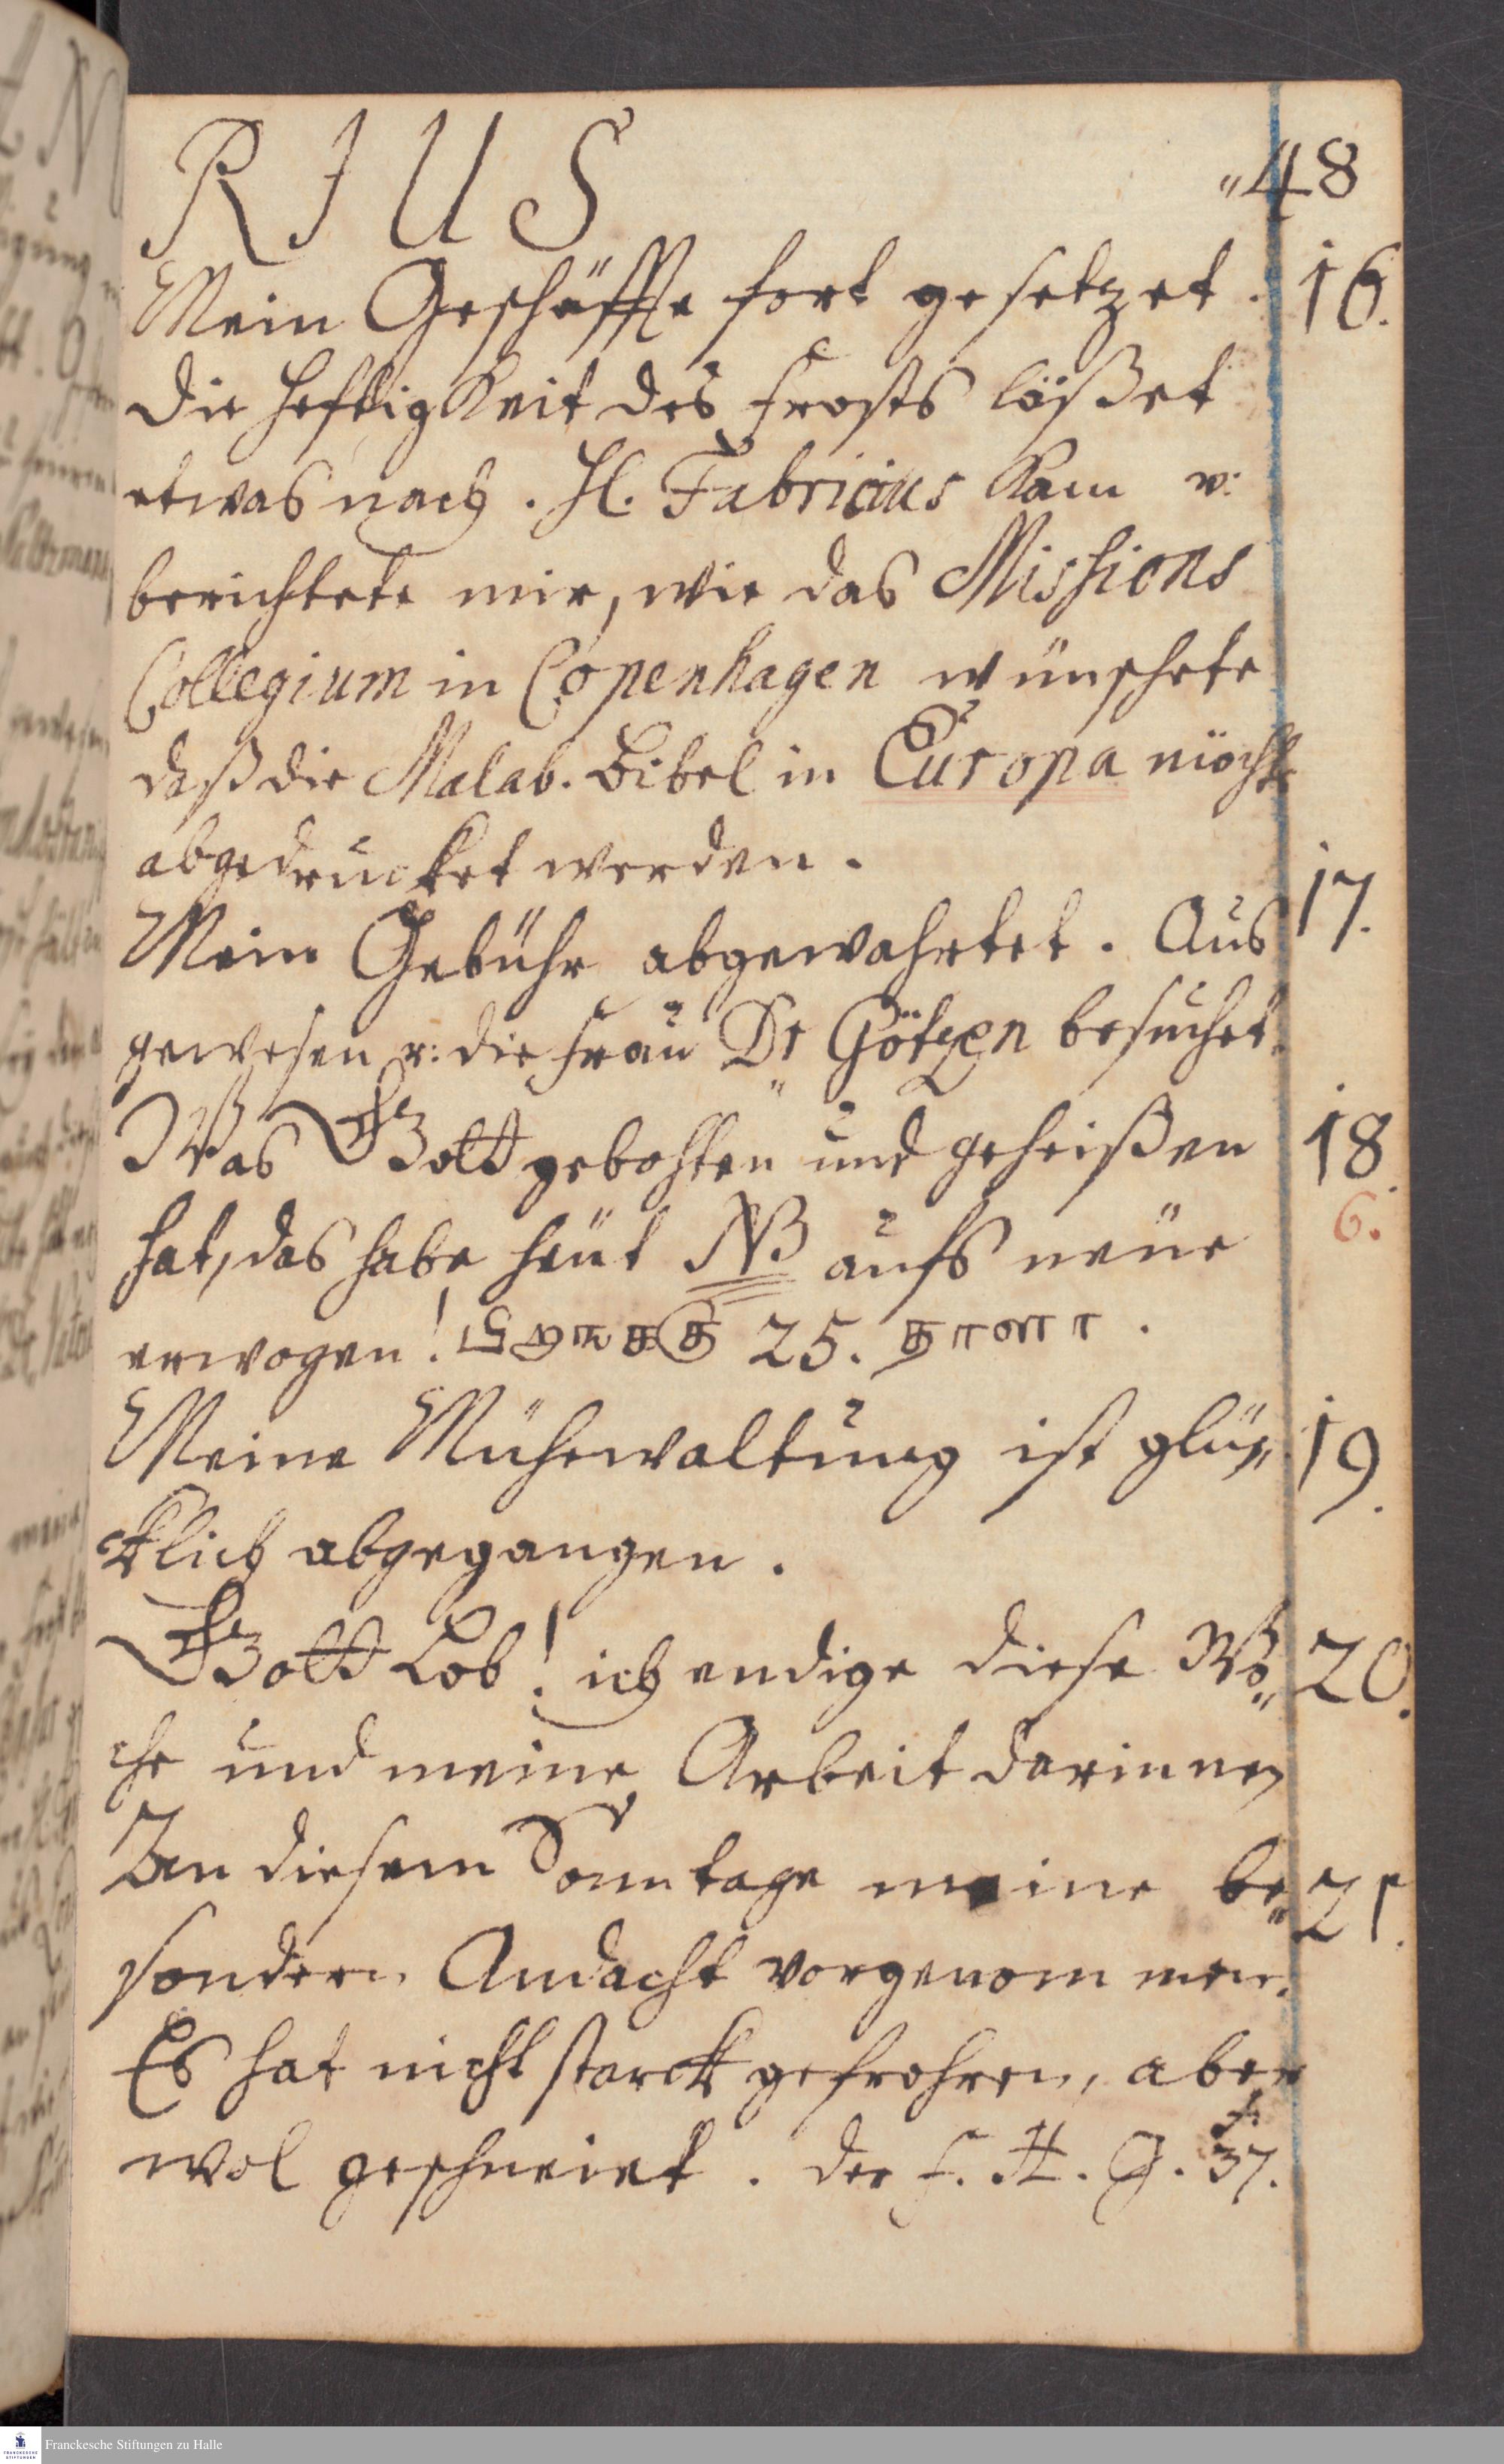 RIUS
„48
Mein Geschäffte fort gesetzet. 16.
die Hefftigkeit des Frosts läßet
etwas nach. H. Fabricius kam u:
berichtete mir, wie das Missions
Collegium in Copenhagen wünschete
daß die Malab. Bibel in Europa möchte
abgedrucket werden.
Mein Gebühr abgewahrtet. Aus 17.
gewesen u: die Frau Dr Götzen besuchet.
Was Gott gebohten und geheißen 18.
hat, das habe heüt NB aufs neüe 6.
erwogen! 25.
Meine Mühewaltung ist glü„ 19.
cklich abgegangen.
Gott Lob! ich endige diese Wo„ 20.
che und meine Arbeit darinnen
An diesem Sonntage meine be„ 21.
sondern Andacht vorgenommen.
Es hat nicht starck gefrohren, aber
wol geschneiet. der f. H. G. 37.
Franckesche Stiftungen zu Halle